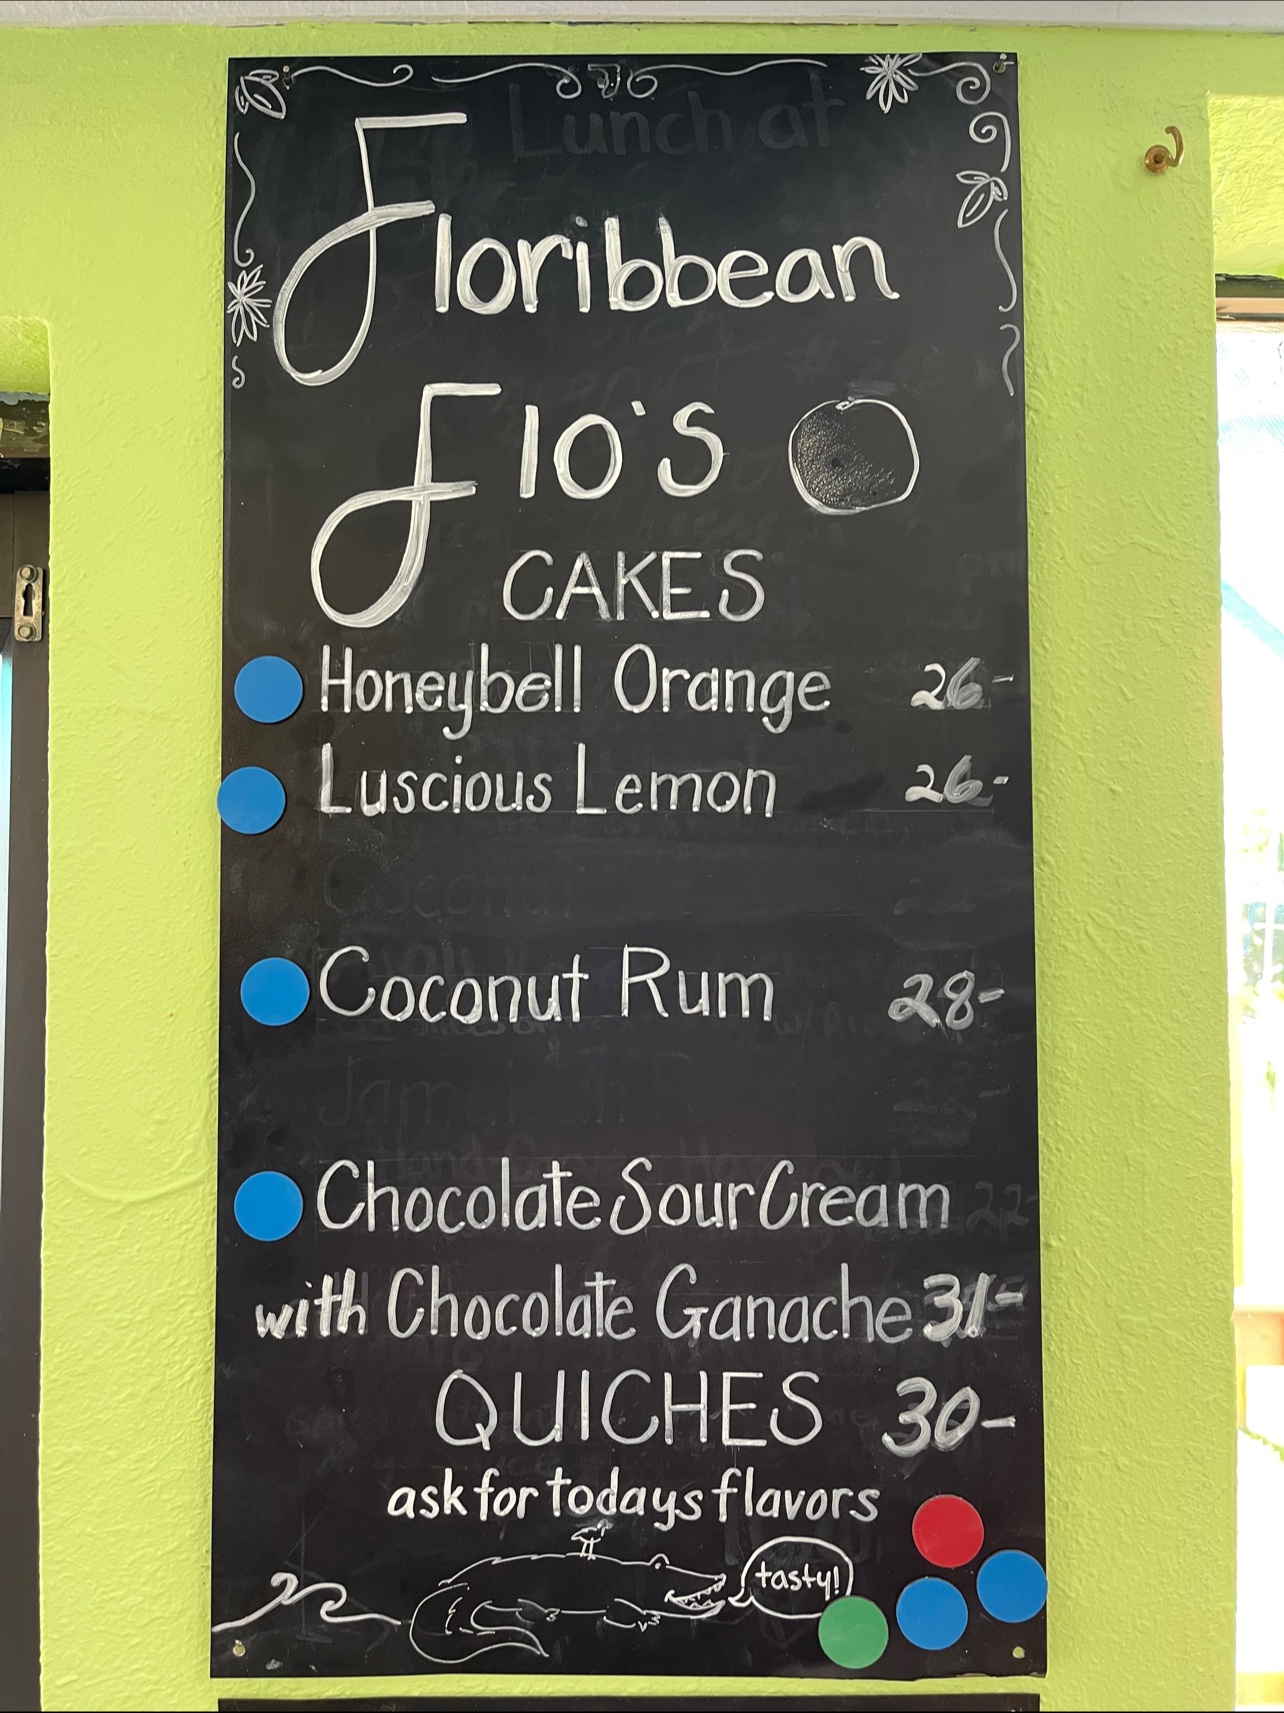 Lunch at
Floribbean
Flo's
CAKES
Honeybell Orange 26-
Luscious Lemon 26-
Coconut
Coconut Rum 28-
Chocolate Sour Cream 22-
with Chocolate Ganache 31-
QUICHES 30-
ask for todays flavors
tasty!